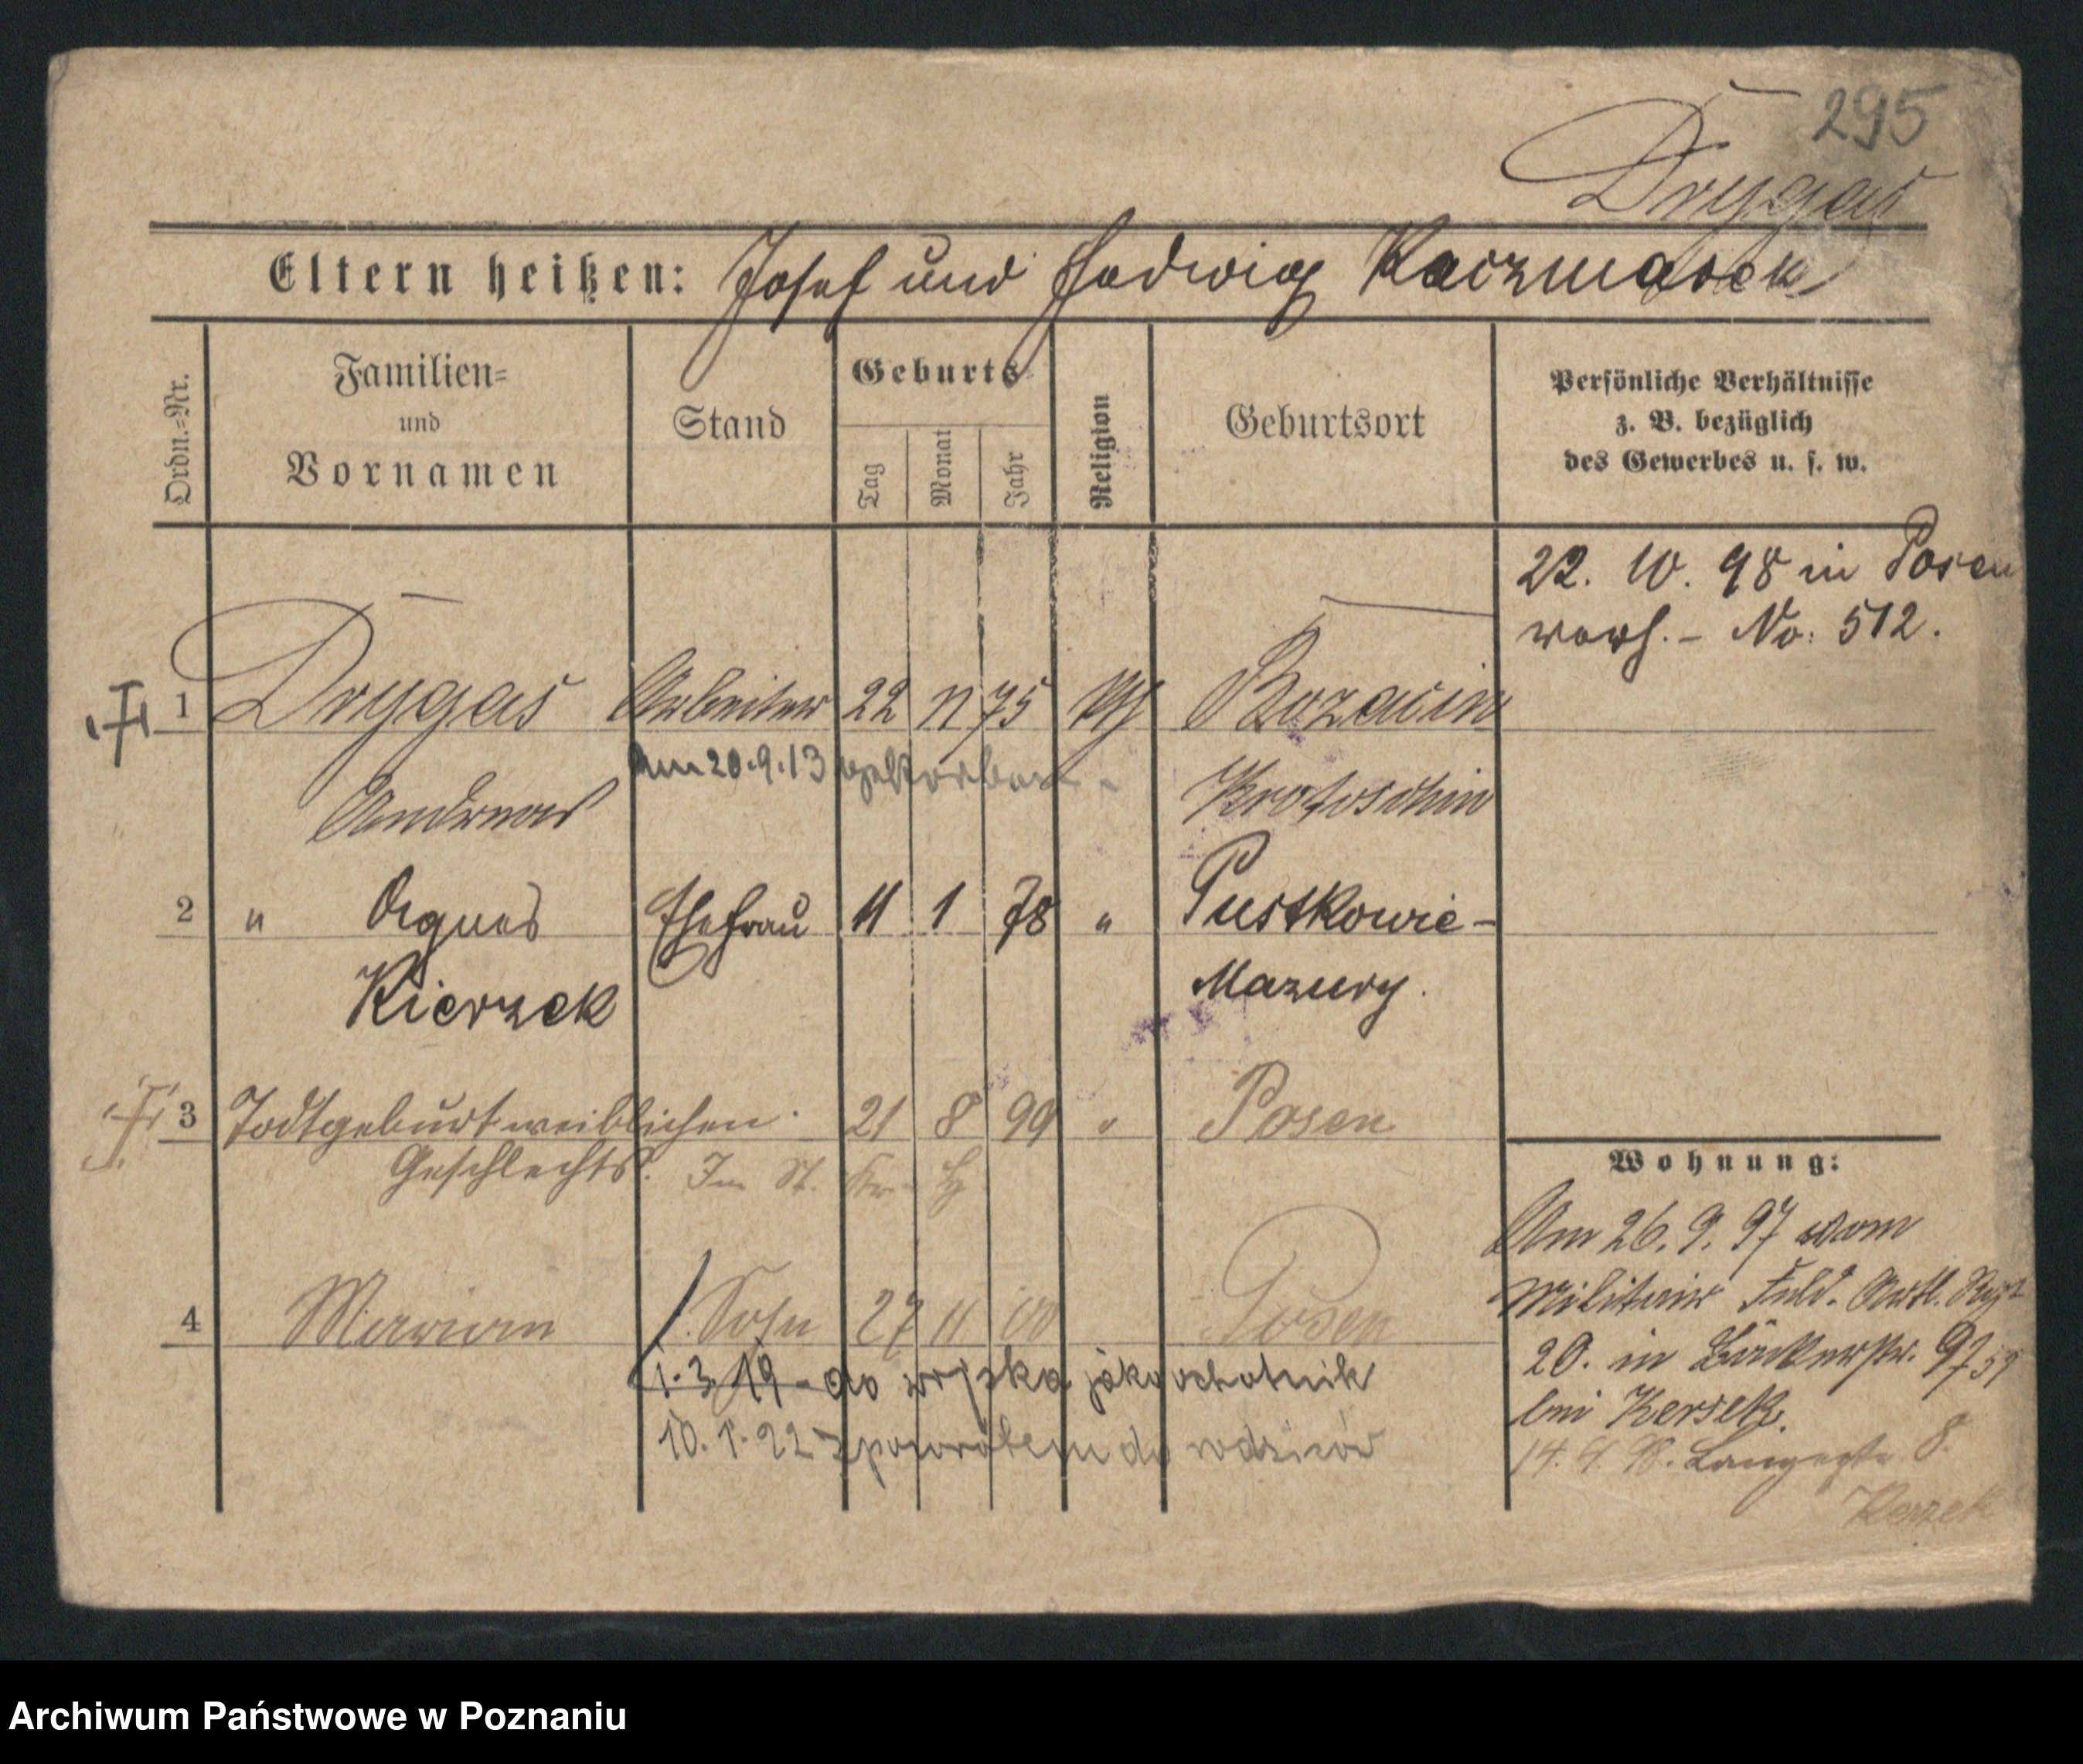 295
Drygas
Eltern heißen: Josef und Hedwig Kaczmarek
Ordn.=Nr.
Familien=
und
Vornamen
Stand
Geburts=
Tag
Monat
Jahr
Religion
Geburtsort
Persönliche Verhältnisse
z. B. bezüglich
des Gewerbes u. s. w.
22. 10. 98 in Posen
verh. - No: 512.
1 Drygas Arbeiter 22 11 75 kth Bozacin
Am 20.9.13 gestorben.
Andreas Krotoschin
2 " Agnes Ehefrau 11 1 78 " Pustkowie-
Kierzek Mazury.
3 Todtgeburt weiblichen 21 8 99 " Posen
Geschlechts. Im St. Kr. H
4 Marian Sohn 27 11 00 Posen
1.3.19 - do wojska jako ochotnik
10.1.22 z powrotem do rodziców
Wohnung:
Am 26.9.97 vom
Militair Feld. Artl. Regt
20. in Bäckerstr.
bei Kerzek.
14. 9. 98. Langestr. 8.
Kerzek
Archiwum Państwowe w Poznaniu